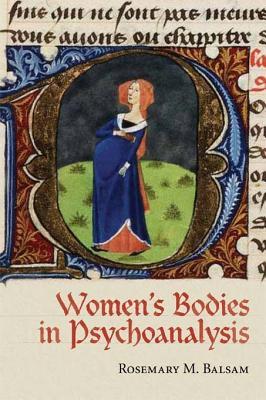 ne sont pas
vous auons ou chapitre
Women's Bodies
in Psychoanalysis
ROSEMARY M. BALSAM